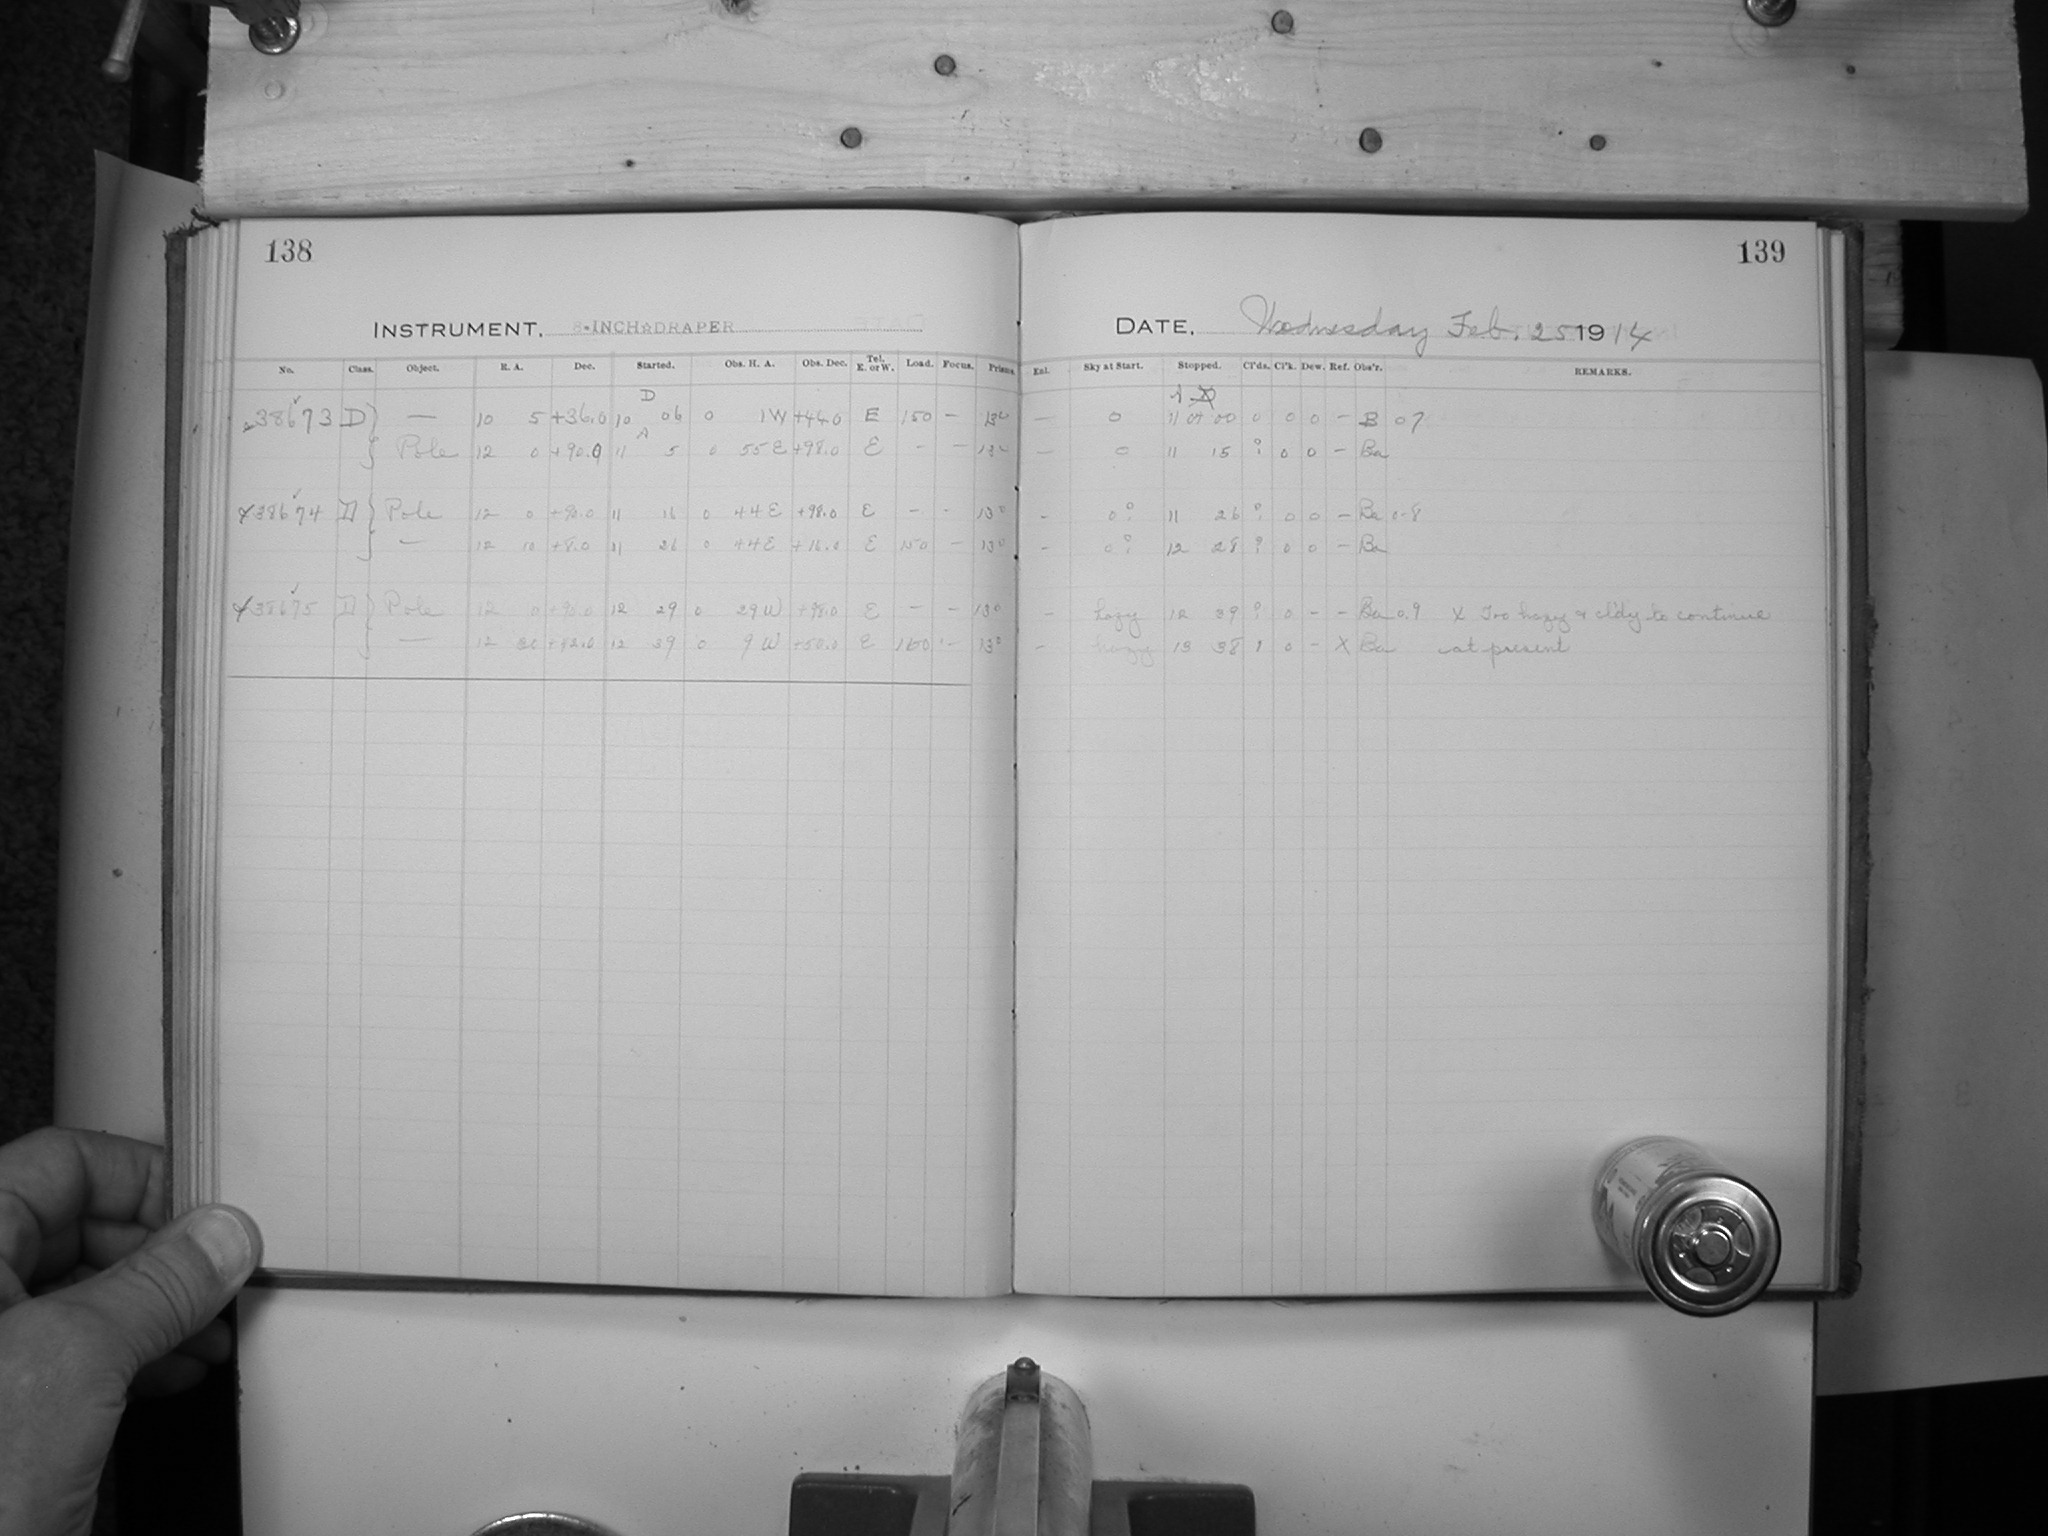 138
139
INSTRUMENT. 8-INCH☆DRAPER
DATE. Wednesday Feb. 25 1914
No. Class. Object. R. A. Dec. Started. Obs. H. A. Obs. Dec. Tel. E. or W. Load. Focus. Prisms. Enl. Sky at Start. Stopped. Cl'ds. Cl'k. Dew. Ref. Obs'r. REMARKS.
D A
38673 D — 10 5 +36.0 10 06 0 1 W +44.0 E 150 — — 0 11 04 00 0 0 0 — B 07
A
Pole 12 0 +90.0 11 5 0 55 E +98.0 E — — — 0 11 15 ? 0 0 — Ba
38674 D Pole 12 0 +90.0 11 16 0 44 E +98.0 E — — 130 — 0? 11 26 ? 0 0 — Ba 0.8
— 12 10 +8.0 11 26 0 44 E +16.0 E 150 — 130 — 0? 12 28 ? 0 0 — Ba
38675 D Pole 12 0 +90.0 12 29 0 29 W +98.0 E — — 130 — hazy 12 39 ? 0 — — Ba 0.9 X Too hazy & cl'dy to continue
— 12 30 +42.0 12 39 0 9 W +50.0 E 150 — 130 — hazy 13 38 1 0 — X Ba at present